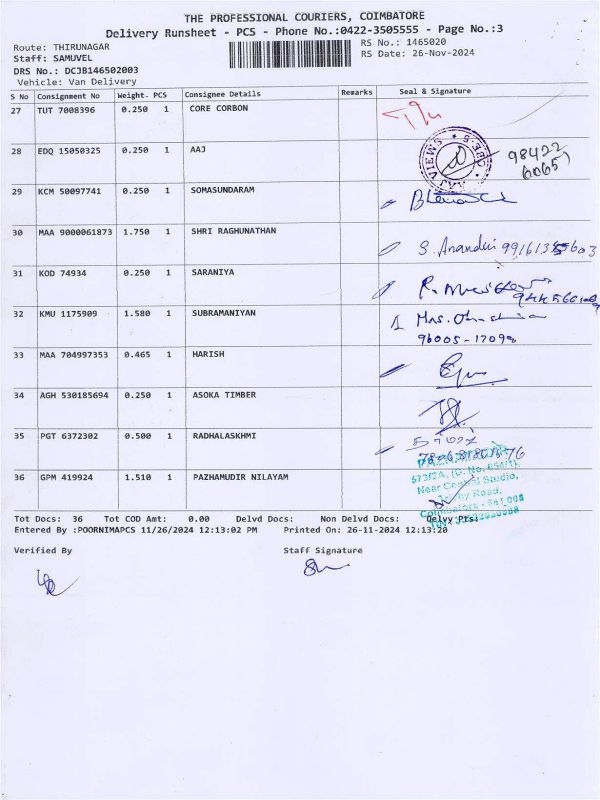 THE PROFESSIONAL COURIERS, COIMBATORE
Delivery Runsheet - PCS - Phone No.:0422-3505555 - Page No.:3
Route: THIRUNAGAR RS No.: 1465020
Staff: SAMUVEL RS Date: 26-Nov-2024
DRS No.: DCJB146502003
Vehicle: Van Delivery
S No Consignment No Weight- PCS Consignee Details Remarks Seal & Signature
27 TUT 7008396 0.250 1 CORE CORBON
28 EDQ 15050325 0.250 1 AAJ
98422
29 KCM 50097741 0.250 1 SOMASUNDARAM
30 MAA 9000061873 1.750 1 SHRI RAGHUNATHAN
31 KOD 74934 0.250 1 SARANIYA
32 KMU 1175909 1.580 1 SUBRAMANIYAN
33 MAA 704997353 0.465 1 HARISH
34 AGH 530185694 0.250 1 ASOKA TIMBER
35 PGT 6372302 0.500 1 RADHALASKHMI
36 GPM 419924 1.510 1 PAZHAMUDIR NILAYAM
673/2A, (D. No. 654/1),
Near Central Studio,
Road,
Coimbatore - 641 005
Tot Docs: 36 Tot COD Amt: 0.00 Delvd Docs: Non Delvd Docs: Delvy Pts:
Entered By :POORNIMAPCS 11/26/2024 12:13:02 PM Printed On: 26-11-2024 12:13:20
Verified By Staff Signature